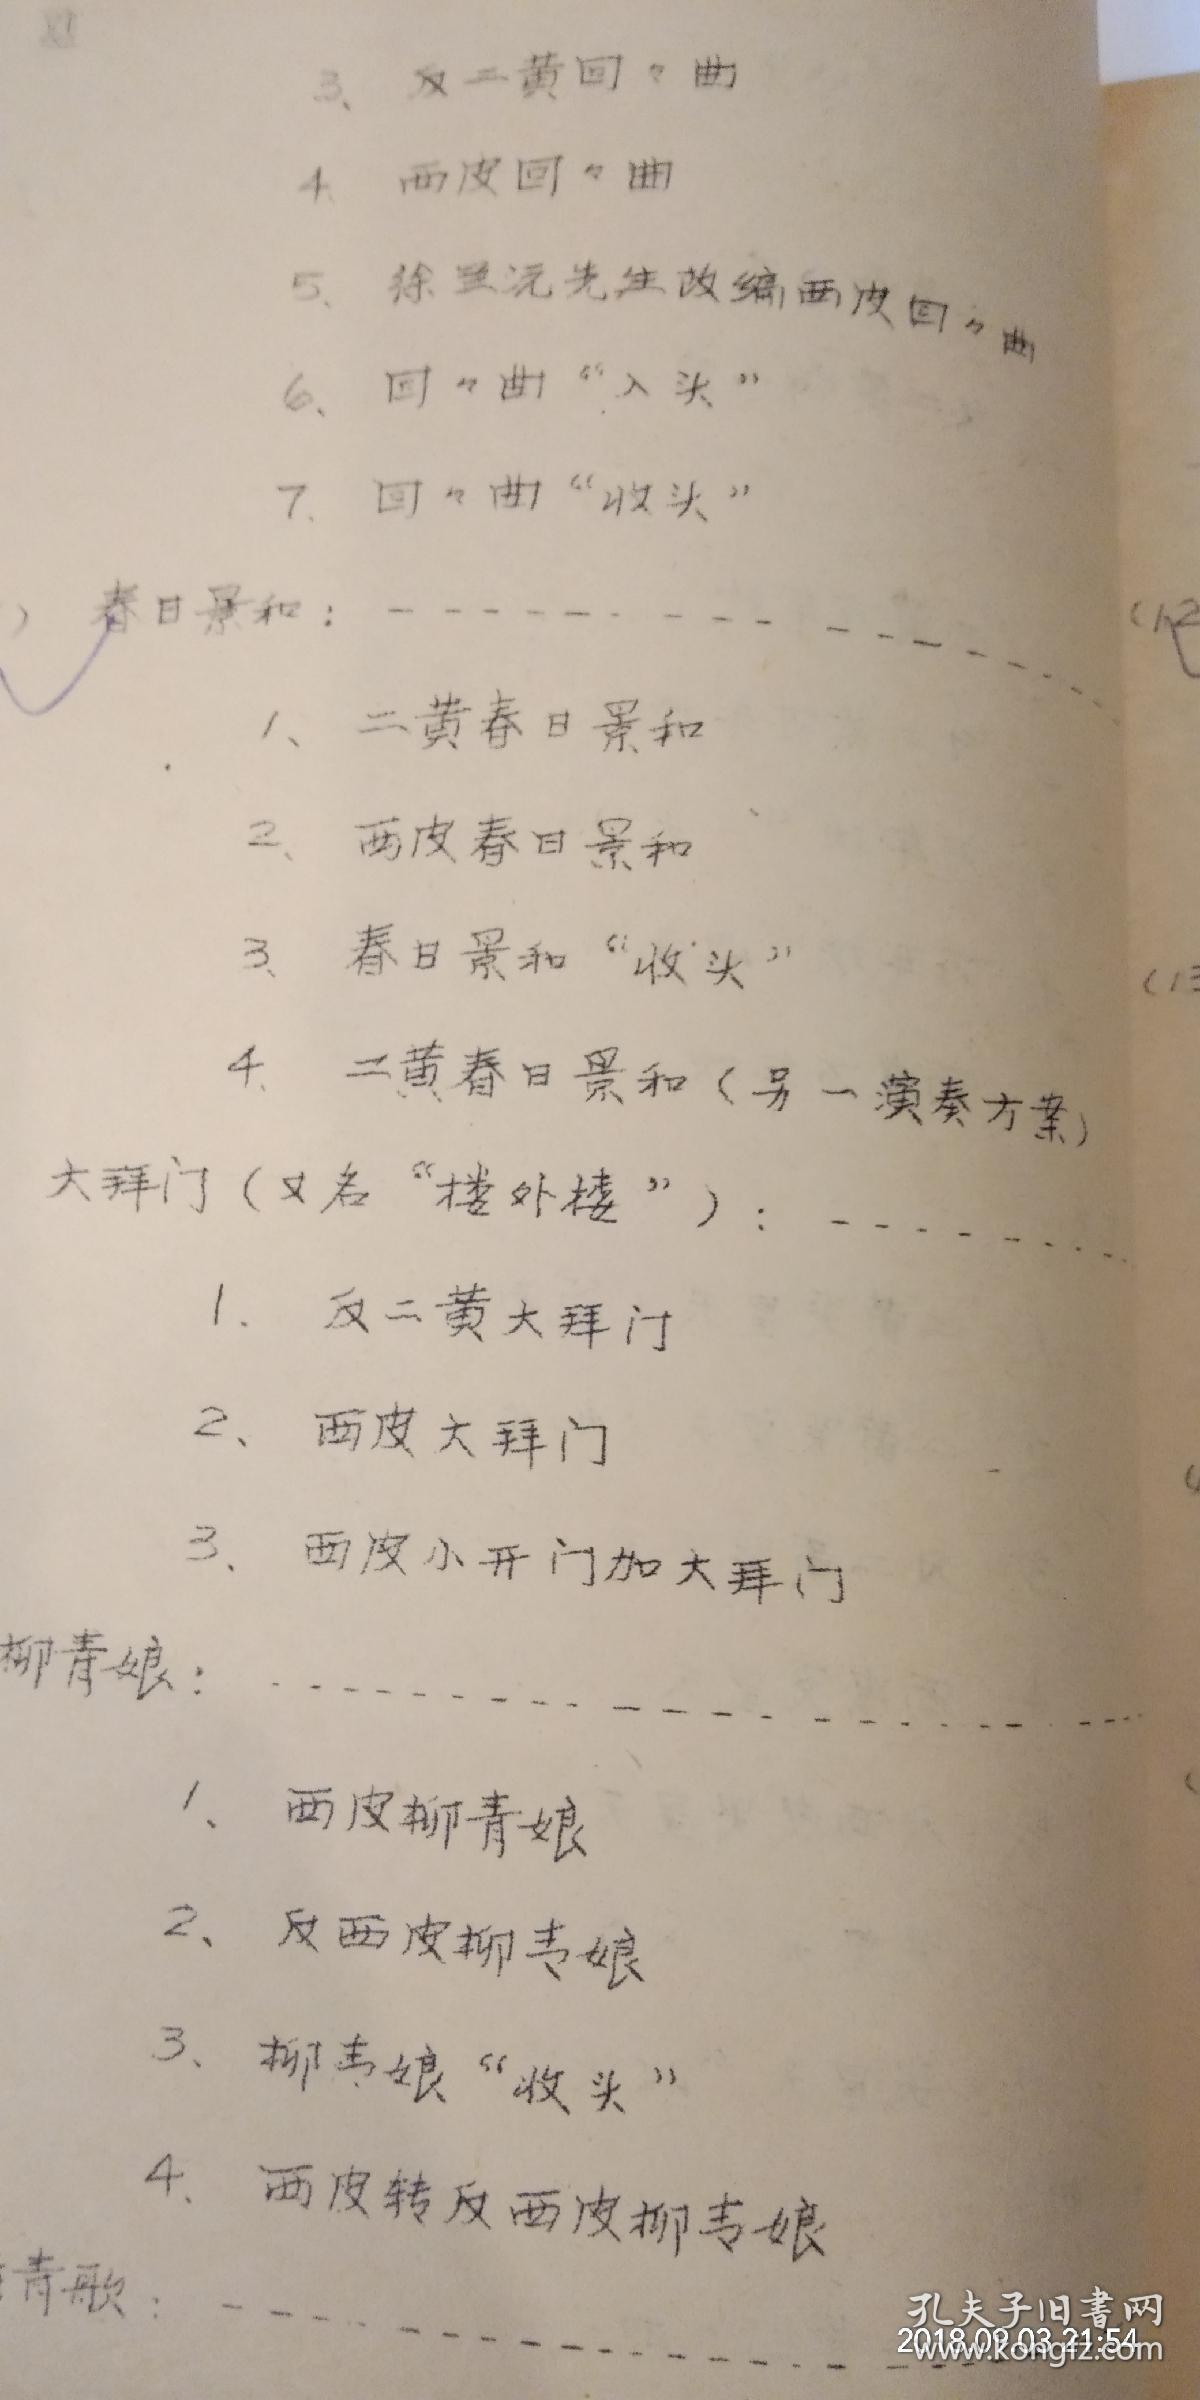 3、 反二黄回々曲
4、 西皮回々曲
5、 徐兰沅先生改编西皮回々曲
6、 回々曲“入头”
7、 回々曲“收头”
) 春日景和：
1、 二黄春日景和
2、 西皮春日景和
3、 春日景和“收头”
4、 二黄春日景和（另一演奏方案）
大拜门（又名“楼外楼”）：
1、 反二黄大拜门
2、 西皮大拜门
3、 西皮小开门加大拜门
柳青娘：
1、 西皮柳青娘
2、 反西皮柳青娘
3、 柳青娘“收头”
4、 西皮转反西皮柳青娘
青歌：
(12
(13
孔夫子旧书网
2018.09.03 21:54
www.kongfz.com